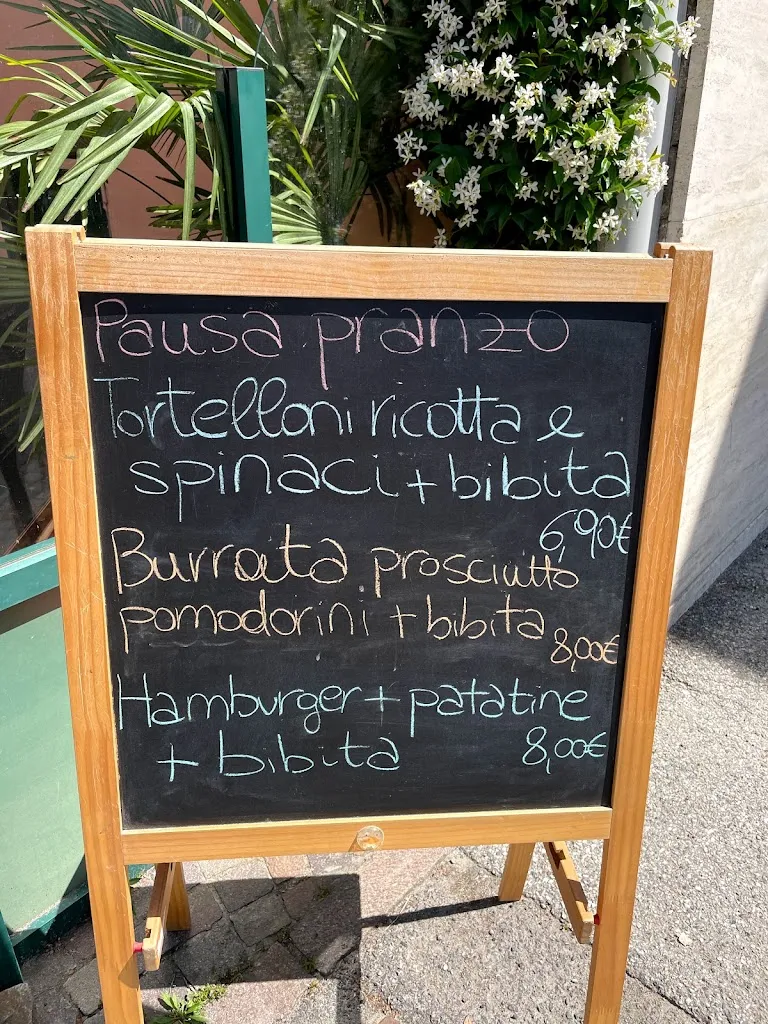 Pausa pranzo
Tortelloni ricotta e
spinaci + bibita
6,90€
Burrata prosciutto
pomodorini + bibita
8,00€
Hamburger + patatine
+ bibita 8,00€